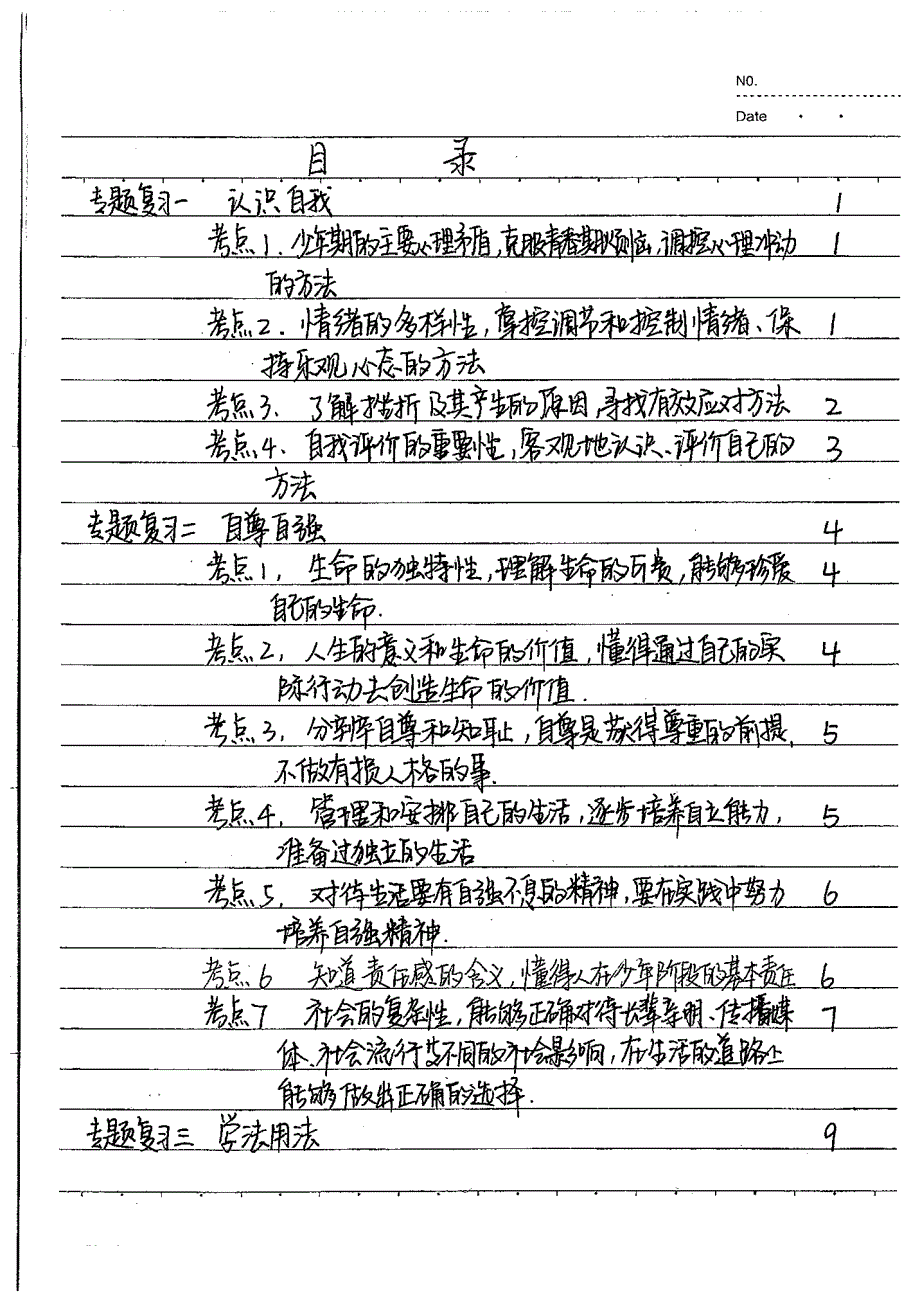 NO.
Date
目 录
专题复习一 认识自我 1
考点1. 少年期的主要心理矛盾,克服青春期烦恼,调控心理冲动 1
的方法
考点2. 情绪的多样性,掌控调节和控制情绪、保 1
持乐观心态的方法
考点3. 了解挫折及其产生的原因,寻找有效应对方法 2
考点4. 自我评价的重要性,客观地认识、评价自己的 3
方法
专题复习二 自尊自强 4
考点1, 生命的独特性,理解生命的可贵,能够珍爱 4
自己的生命.
考点2, 人生的意义和生命的价值,懂得通过自己的实 4
际行动去创造生命的价值.
考点3, 分辨自尊和知耻,自尊是获得尊重的前提, 5
不做有损人格的事.
考点4, 管理和安排自己的生活,逐步培养自立能力, 5
准备过独立的生活
考点5, 对待生活要有自强不息的精神,要在实践中努力 6
培养自强精神.
考点6 知道责任感的含义,懂得人在少年阶段的基本责任 6
考点7 社会的复杂性,能够正确对待长辈亲朋、传播媒 7
体、社会流行等不同的社会影响,在生活的道路上
能够做出正确的选择.
专题复习三 学法用法 9